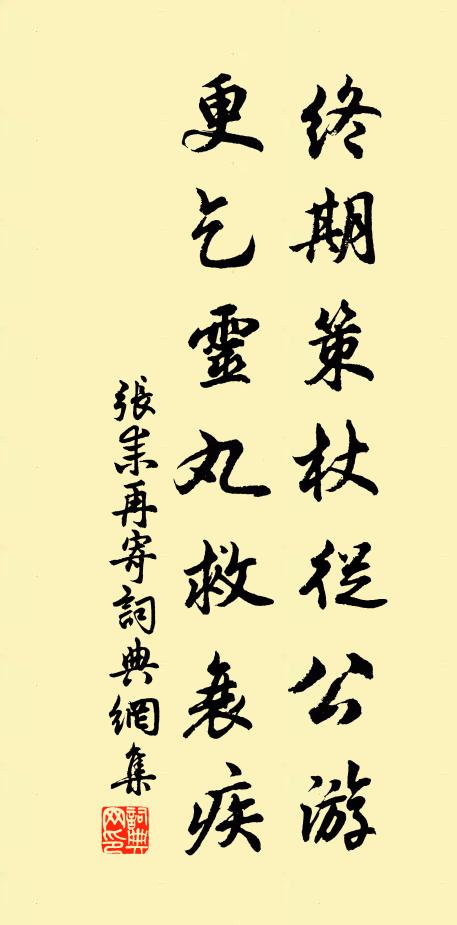 終期策杖從公游
更乞靈丸救衰疾
張耒再寄詞典網集
詞典
网印